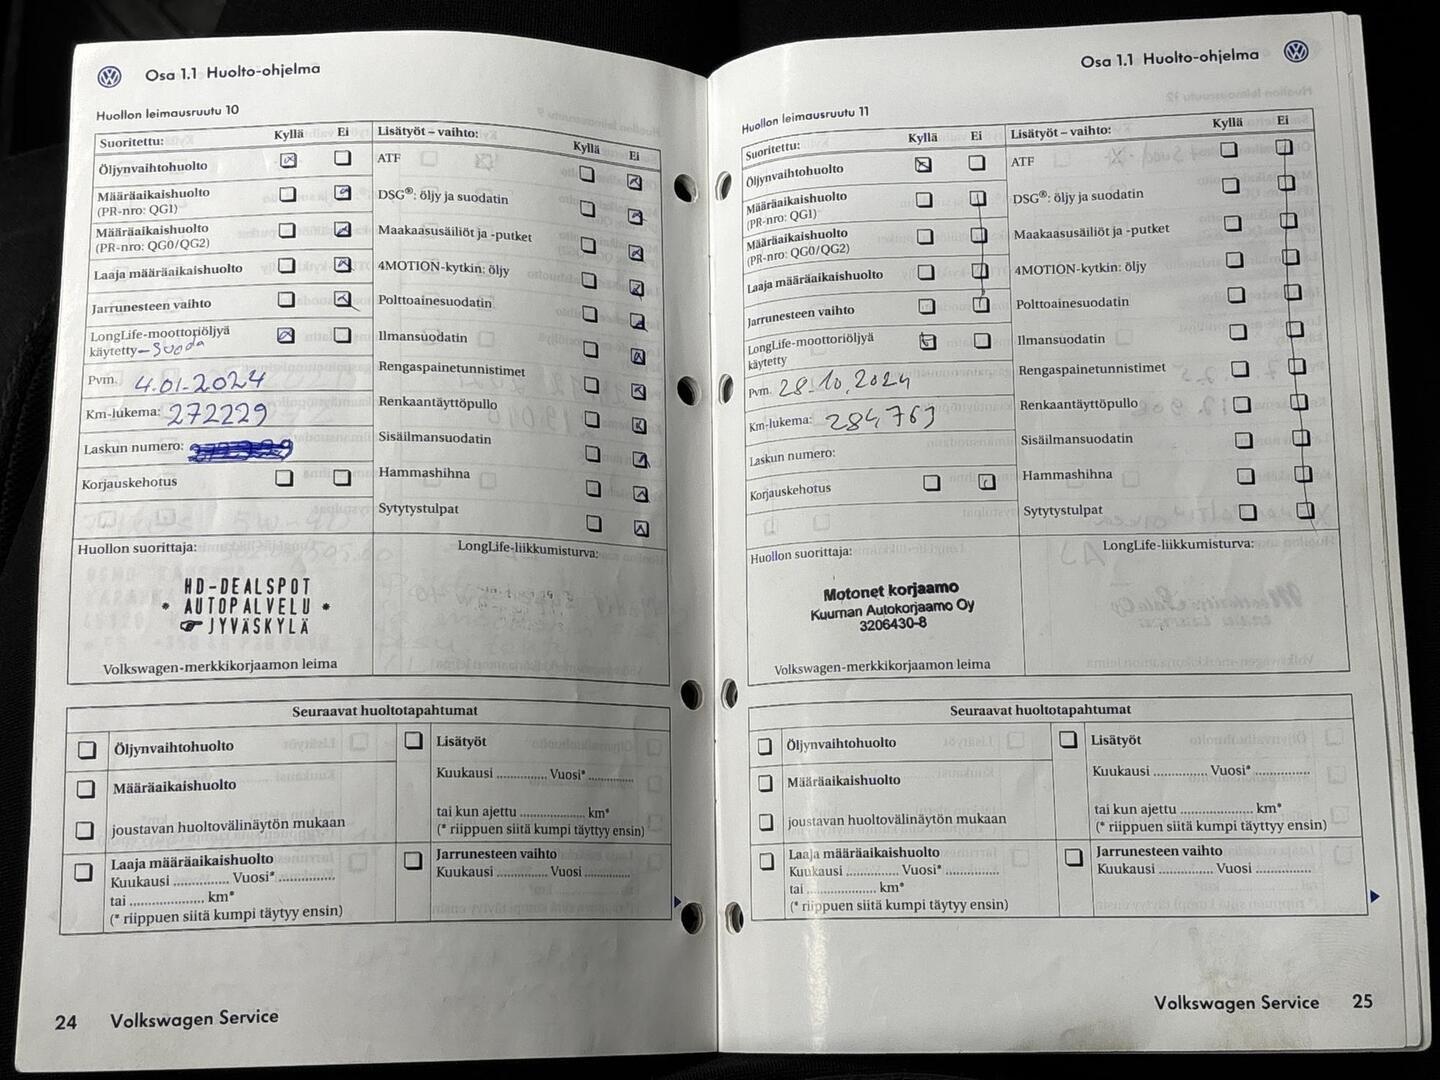 Osa 1.1 Huolto-ohjelma
Huollon leimausruutu 10
Suoritettu: Kyllä Ei
Öljynvaihtohuolto
Määräaikaishuolto
(PR-nro: QG1)
Määräaikaishuolto
(PR-nro: QG0/QG2)
Laaja määräaikaishuolto
Jarrunesteen vaihto
LongLife-moottoriöljyä
käytetty
Pvm. 4.01.2024
Km-lukema: 272229
Laskun numero:
Korjauskehotus
Lisätyöt – vaihto: Kyllä Ei
ATF
DSG®: öljy ja suodatin
Maakaasusäiliöt ja -putket
4MOTION-kytkin: öljy
Polttoainesuodatin
Ilmansuodatin
Rengaspainetunnistimet
Renkaantäyttöpullo
Sisäilmansuodatin
Hammashihna
Sytytystulpat
Huollon suorittaja:
HD-DEALSPOT
* AUTOPALVELU *
☞ JYVÄSKYLÄ
Volkswagen-merkkikorjaamon leima
LongLife-liikkumisturva:
Seuraavat huoltotapahtumat
Öljynvaihtohuolto
Määräaikaishuolto
joustavan huoltovälinäytön mukaan
Laaja määräaikaishuolto
Kuukausi ............... Vuosi* ...............
tai .................... km*
(* riippuen siitä kumpi täytyy ensin)
Lisätyöt
Kuukausi .............. Vuosi* .............
tai kun ajettu .................... km*
(* riippuen siitä kumpi täyttyy ensin)
Jarrunesteen vaihto
Kuukausi .............. Vuosi .............
24 Volkswagen Service
Osa 1.1 Huolto-ohjelma
Huollon leimausruutu 11
Suoritettu: Kyllä Ei
Öljynvaihtohuolto
Määräaikaishuolto
(PR-nro: QG1)
Määräaikaishuolto
(PR-nro: QG0/QG2)
Laaja määräaikaishuolto
Jarrunesteen vaihto
LongLife-moottoriöljyä
käytetty
Pvm. 28.10.2024
Km-lukema: 284763
Laskun numero:
Korjauskehotus
Lisätyöt – vaihto: Kyllä Ei
ATF
DSG®: öljy ja suodatin
Maakaasusäiliöt ja -putket
4MOTION-kytkin: öljy
Polttoainesuodatin
Ilmansuodatin
Rengaspainetunnistimet
Renkaantäyttöpullo
Sisäilmansuodatin
Hammashihna
Sytytystulpat
Huollon suorittaja:
Motonet korjaamo
Kuurnan Autokorjaamo Oy
3206430-8
Volkswagen-merkkikorjaamon leima
LongLife-liikkumisturva:
Seuraavat huoltotapahtumat
Öljynvaihtohuolto
Määräaikaishuolto
joustavan huoltovälinäytön mukaan
Laaja määräaikaishuolto
Kuukausi .............. Vuosi* ..............
tai .................... km*
(* riippuen siitä kumpi täytyy ensin)
Lisätyöt
Kuukausi .............. Vuosi* ..............
tai kun ajettu .................... km*
(* riippuen siitä kumpi täyttyy ensin)
Jarrunesteen vaihto
Kuukausi .............. Vuosi ..............
Volkswagen Service 25